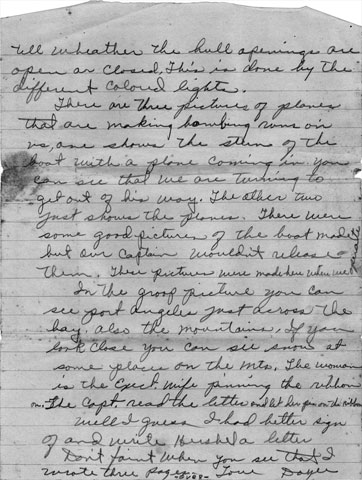 tell wheather the hull openings are
open or closed. This is done by the
different colored lights.
There are three pictures of planes
that are making bombing runs on
us, one shows the stern of the
boat with a plane coming in you
can see that we are turning to
get out of his way. The other two
just shows the planes. There were
some good pictures of the boat made
but our captain wouldn't release
them. These pictures were made here when we
In the groop picture you can
see port angeles just across the
bay, also the mountains. If you
look close you can see snow at
some places on the mts. The woman
is the Capt. wife pinning the ribbon
on. The Capt. read the letter and let her pin on the ribbon
Well I guess I had better sign
of and write Hershel a letter
Don't faint when you see that I
wrote three pages. Love
-over-